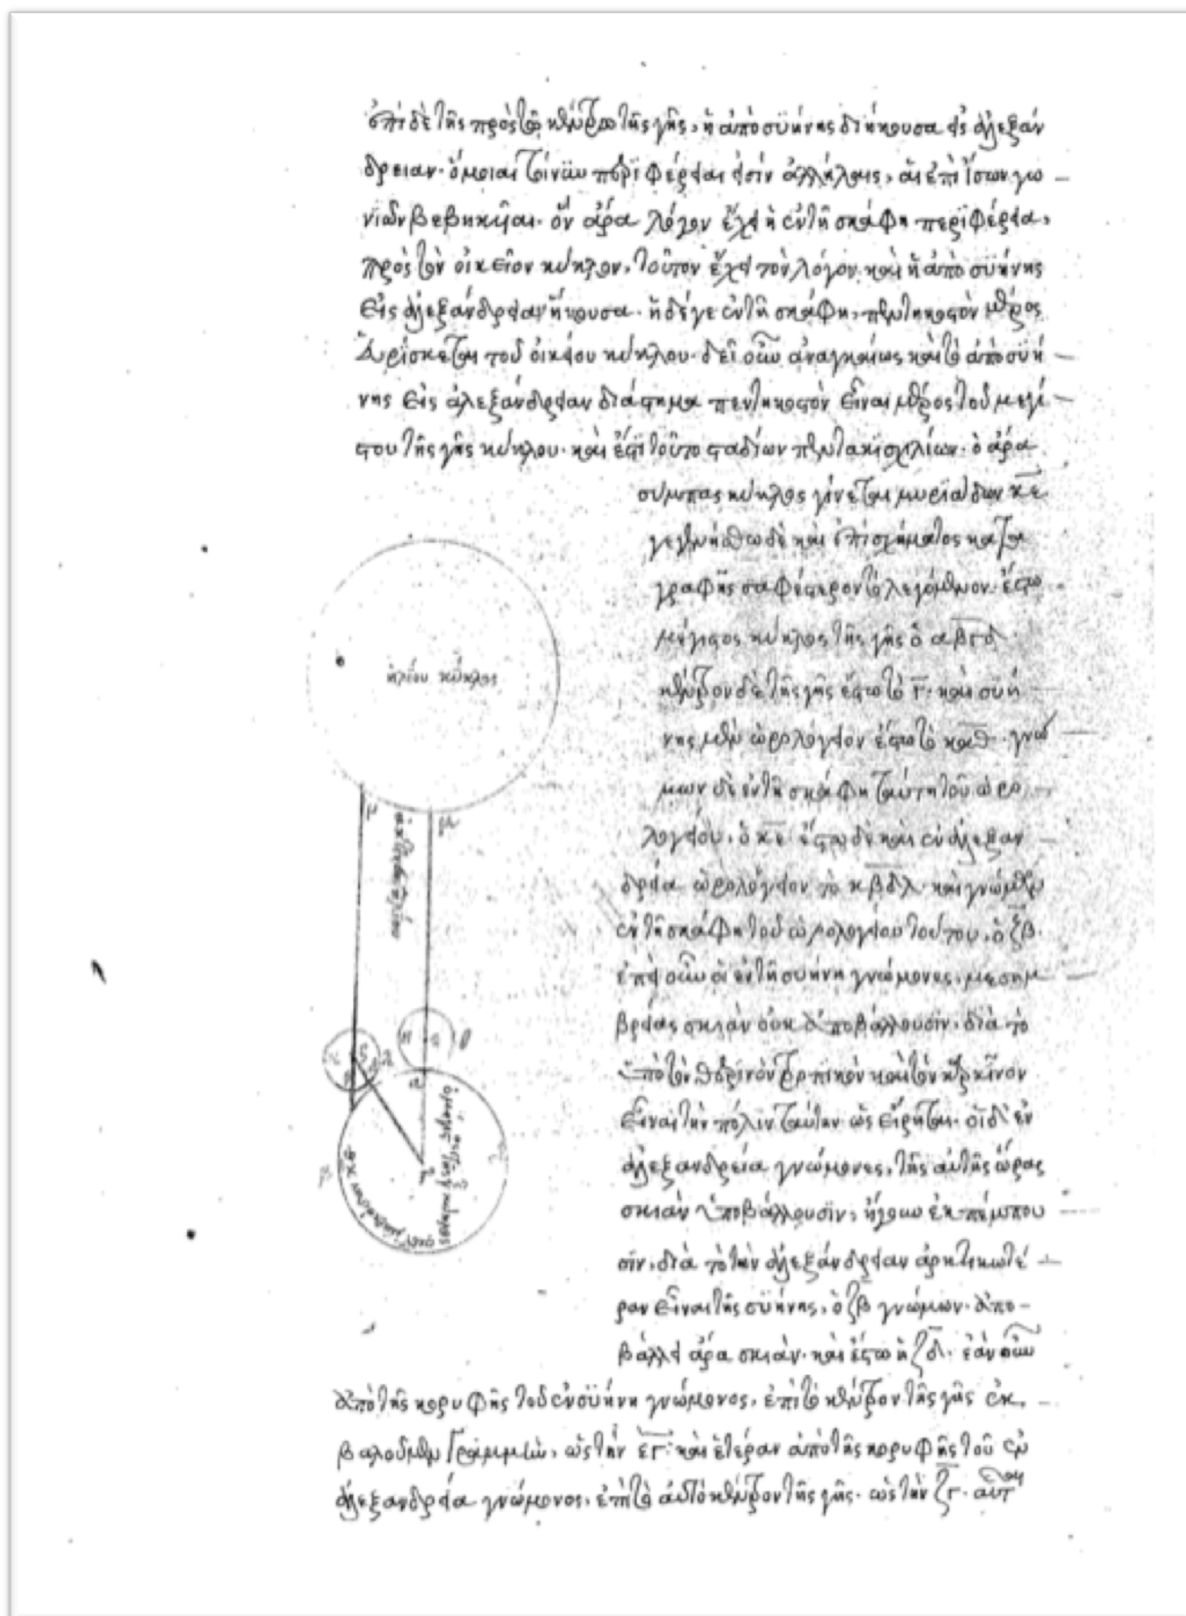 ἐπὶ δὲ τῆς πρὸς τῷ κέντρῳ τῆς γῆς, ἡ ἀπὸ συήνης διήκουσα εἰς ἀλεξάν
δρειαν· ὅμοιαι τοίνυν περιφέρειαί εἰσιν ἀλλήλαις, αἱ ἐπὶ ἴσων γω
νιῶν βεβηκυῖαι· ὃν ἄρα λόγον ἔχει ἡ ἐν τῇ σκάφῃ περιφέρεια,
πρὸς τὸν οἰκεῖον κύκλον, τοῦτον ἔχει τὸν λόγον καὶ ἡ ἀπὸ συήνης
εἰς ἀλεξάνδρειαν ἥκουσα· ἡ δέ γε ἐν τῇ σκάφῃ, πεντηκοστὸν μέρος
εὑρίσκεται τοῦ οἰκείου κύκλου· δεῖ οὖν ἀναγκαίως καὶ τὸ ἀπὸ συή
νης εἰς ἀλεξάνδρειαν διάστημα πεντηκοστὸν εἶναι μέρος τοῦ μεγί
στου τῆς γῆς κύκλου· καὶ ἔστι τοῦτο σταδίων πεντακισχιλίων· ὁ ἄρα
σύμπας κύκλος γίνεται μυριάδων κε
γεγενήσθω δὲ καὶ ἐπὶ σχήματος κατα
γραφῆς σαφέστερον τὸ λεγόμενον· ἔστω
μέγιστος κύκλος τῆς γῆς ὁ αβγδ·
κέντρον δὲ τῆς γῆς ἔστω τὸ γ· καὶ συή
νης μὲν ὡρολόγειον ἔστω τὸ καθ· γνώ
μων δὲ ἐν τῇ σκάφῃ ταύτῃ τοῦ ὡρο
λογείου, ὁ κε· ἔστω δὲ καὶ ἐν ἀλεξαν
δρεία ὡρολόγειον τὸ κβδλ· καὶ γνώμων
ἐν τῇ σκάφῃ τοῦ ὡρολογείου τούτου, ὁ ζβ·
ἐπεὶ οὖν οἱ ἐν τῇ συήνῃ γνώμονες, μεσημ
βρείας σκιὰν οὐκ ἀποβάλλουσιν, διὰ τὸ
ὑπὸ τὸν θερινὸν τροπικὸν καὶ τὸν καρκῖνον
εἶναι τὴν πόλιν ταύτην ὡς εἴρηται· οἱ δὲ ἐν
ἀλεξανδρεία γνώμονες, τῆς αὐτῆς ὥρας
σκιὰν ἀποβάλλουσιν, ἤγουν ἐκπέμπου
σιν, διὰ τὸ τὴν ἀλεξάνδρειαν ἀρκτικωτέ
ραν εἶναι τῆς συήνης, ὁ ζβ γνώμων· ἀπο
βάλλει ἄρα σκιὰν· καὶ ἔστω ἡ ζδ· ἐὰν οὖν
ἀπὸ τῆς κορυφῆς τοῦ ἐν συήνη γνώμονος, ἐπὶ τὸ κέντρον τῆς γῆς ἐκ
βαλοῦμεν γραμμὴν, ὡς τὴν εγ· καὶ ἑτέραν ἀπὸ τῆς κορυφῆς τοῦ ἐν
ἀλεξανδρεία γνώμονος, ἐπὶ τὸ αὐτὸ κέντρον τῆς γῆς· ὡς τὴν ζγ·
ἡλίου κύκλος